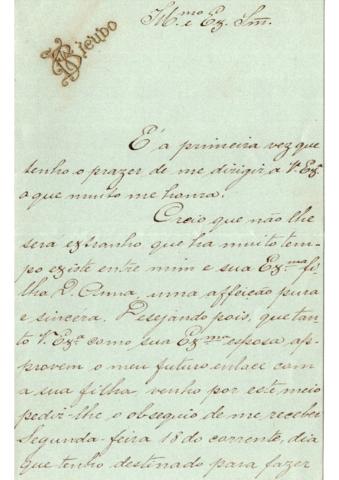 Bicudo
Illmo. e Ex. Snr.
É a primeira vez que
tenho o prazer de me dirigir a V. Exa.
o que muito me honra.
Creio que não lhe
será extranho que ha muito tem-
po existe entre mim e sua Exma fi-
lha D. Anna uma affeição pura
e sincera. Desejando pois, que tan-
to V. Exa como sua Exma esposa, ap-
provem o meu futuro enlace com
a sua filha, venho por este meio
pedir-lhe o obsequio de me receber
Segunda-feira 18 do corrente, dia
que tenho destinado para fazer